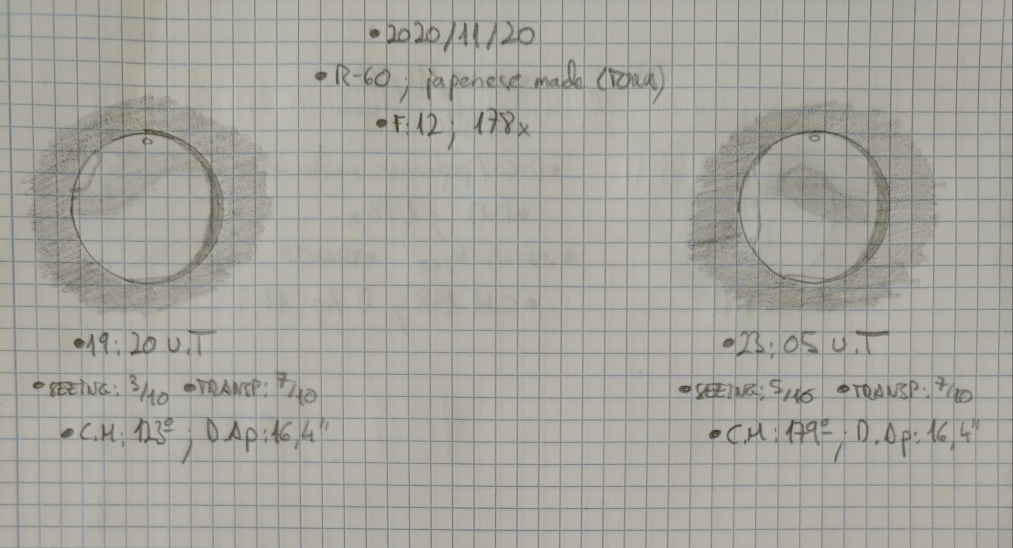 •2020/11/20
•R-60; japenese made (TOWA)
•F:12; 178x
•19:20 U.T
•SEEING: 3/10 •TRANSP: 7/10
•C.M: 123º; D.Ap: 16,4"
•23:05 U.T
•SEEING: 5/10 •TRANSP: 7/10
•C.M: 179º; D.Ap: 16,4"